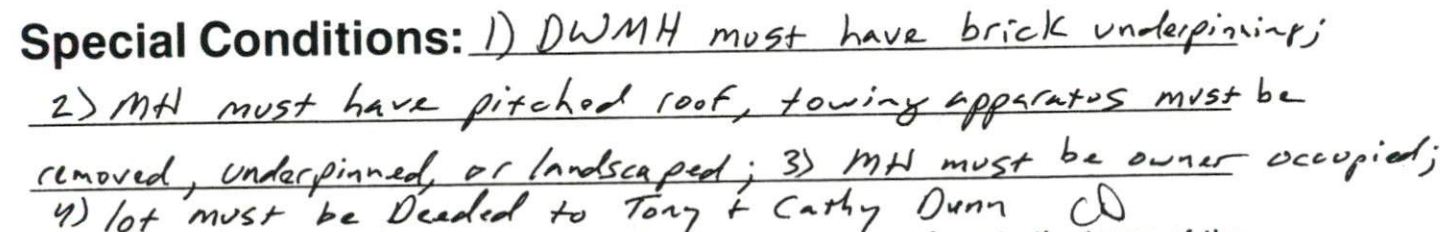 Special Conditions: 1) DWMH must have brick underpinning;
2) MH must have pitched roof, towing apparatus must be
removed, underpinned, or landscaped; 3) MH must be owner occupied;
4) lot must be Deeded to Tony + Cathy Dunn CD